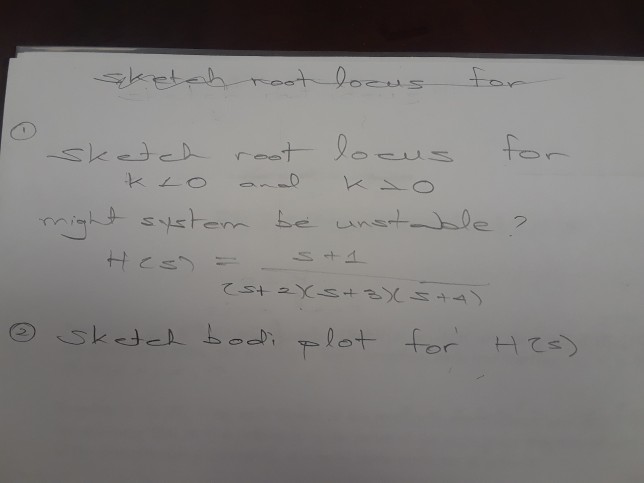 sketch root locus for
① sketch root locus for
K<0 and K>0
might system be unstable?
H(s) = s+1
(s+2)(s+3)(s+4)
② sketch bodi plot for H(s)